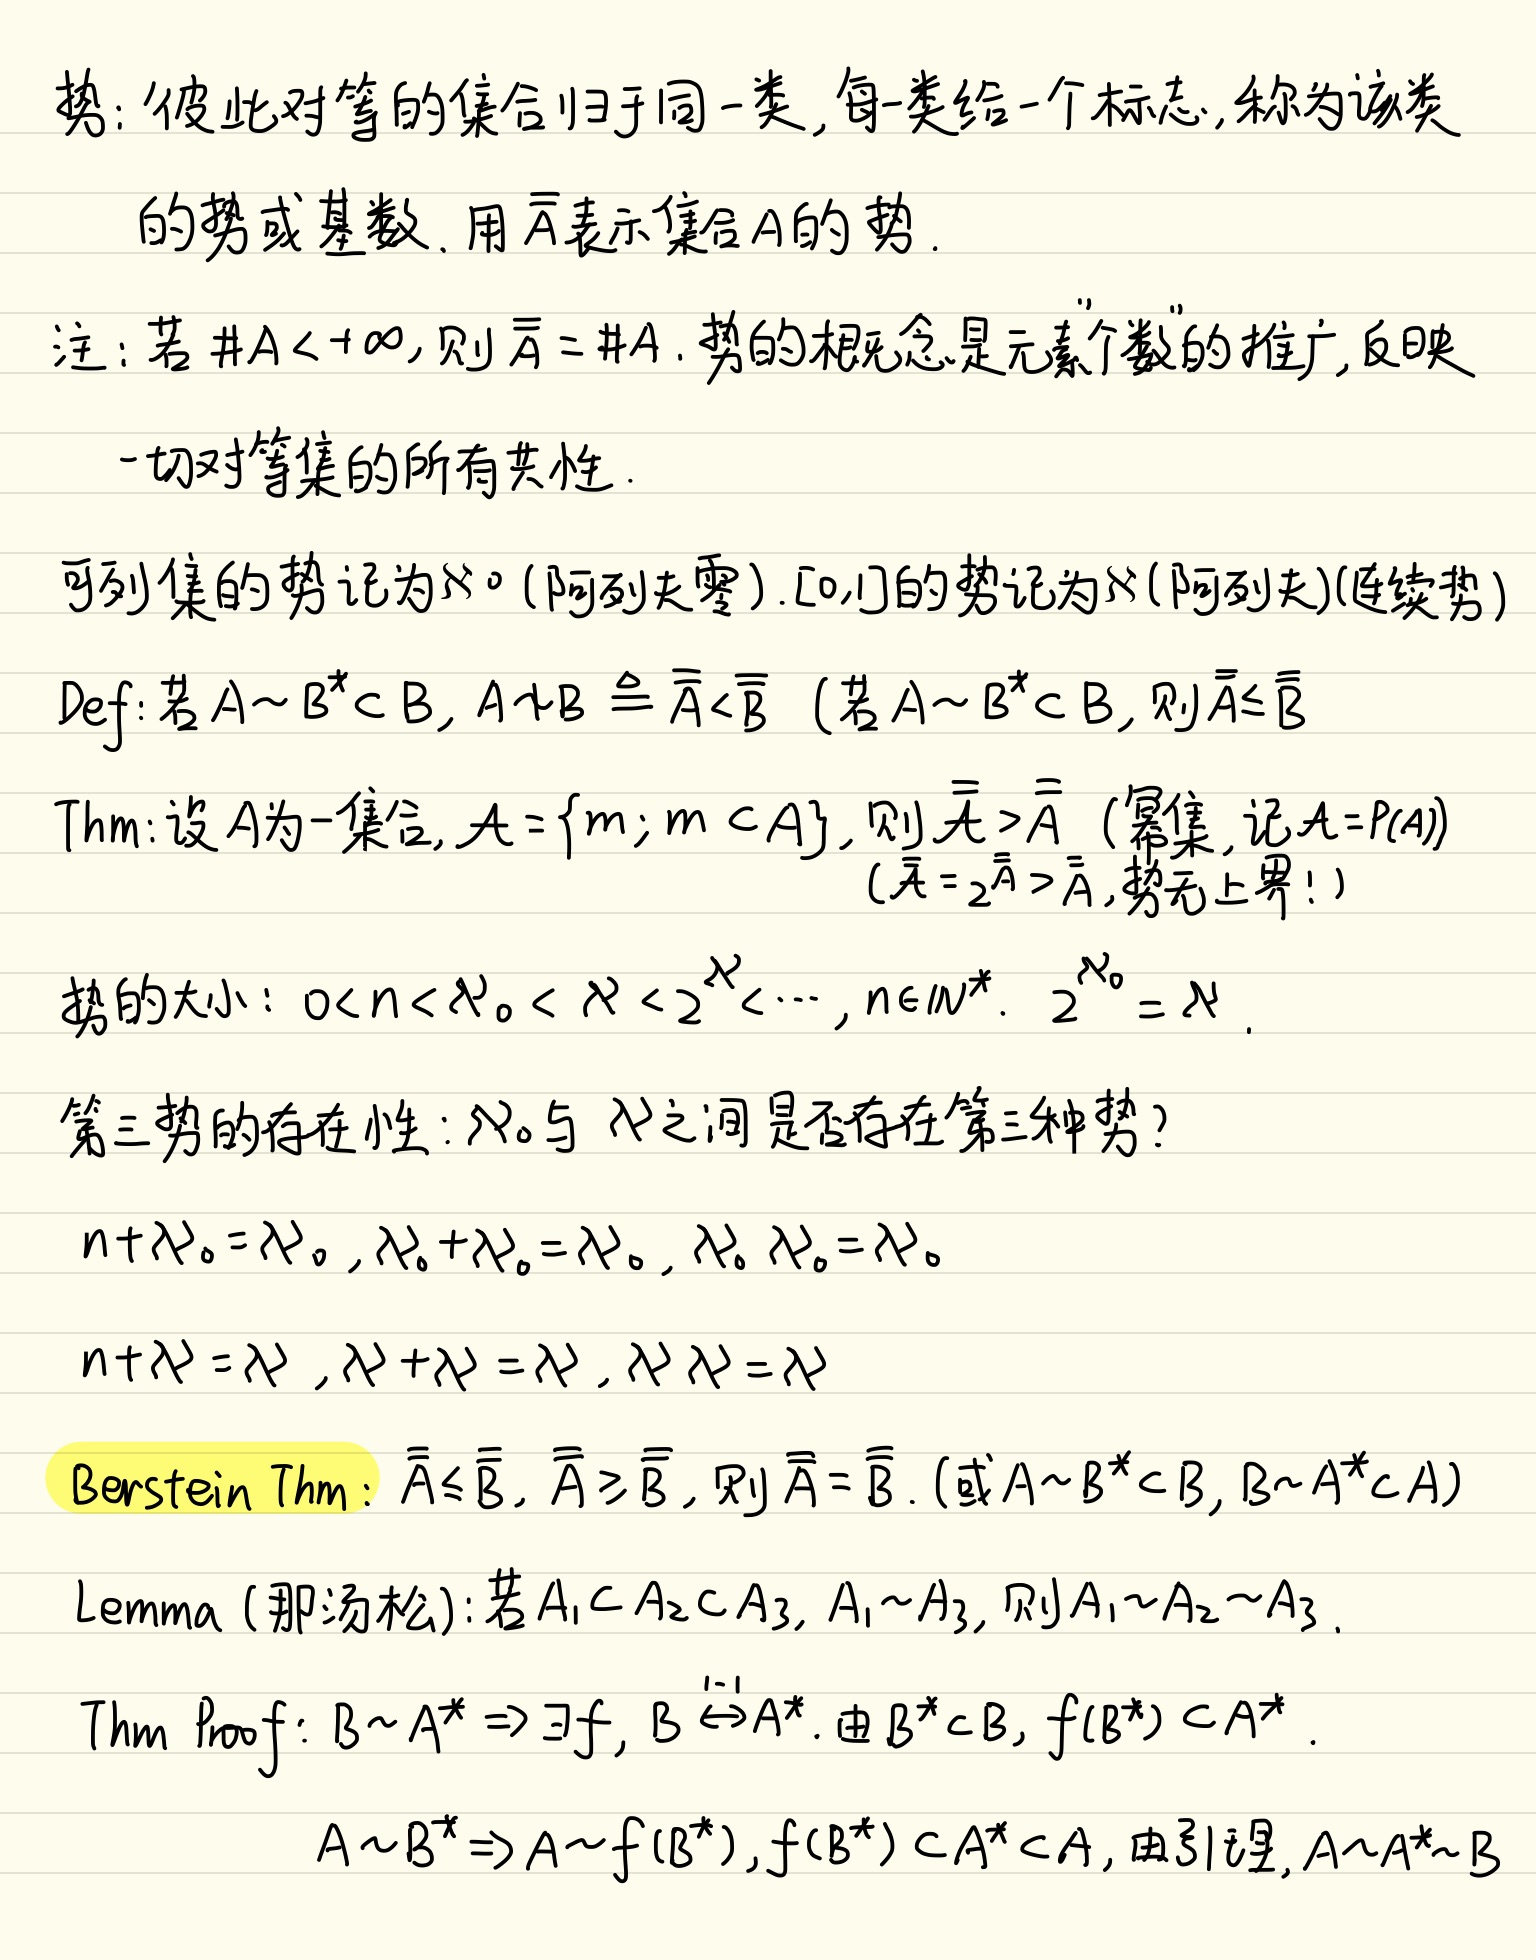 势：彼此对等的集合归于同一类，每一类给一个标志，称为该类
的势或基数．用 A̿ 表示集合A的势．
注：若 #A<+∞，则 A̿ = #A．势的概念是元素“个数”的推广，反映
一切对等集的所有共性．
可列集的势记为ℵ₀（阿列夫零）．[0,1]的势记为ℵ（阿列夫）（连续势）
Def：若 A∼B*⊂B, A≁B ≜ A̿<B̿ （若 A∼B*⊂B, 则 A̿≤B̿
Thm：设A为一集合，𝒜={m; m⊂A}, 则 𝒜̿>A̿ （幂集，记𝒜=P(A)）
（𝒜̿=2^A̿>A̿，势无上界！）
势的大小：0<n<ℵ₀<ℵ<2^ℵ<⋯, n∈ℕ*. 2^ℵ₀=ℵ．
第三势的存在性：ℵ₀与ℵ之间是否存在第三种势？
n+ℵ₀=ℵ₀, ℵ₀+ℵ₀=ℵ₀, ℵ₀ ℵ₀=ℵ₀
n+ℵ=ℵ, ℵ+ℵ=ℵ, ℵ ℵ=ℵ
Berstein Thm：A̿≤B̿, A̿≥B̿, 则 A̿=B̿．（或 A∼B*⊂B, B∼A*⊂A）
Lemma（那汤松）：若A₁⊂A₂⊂A₃, A₁∼A₃, 则A₁∼A₂∼A₃．
Thm Proof：B∼A* ⇒ ∃f, B 1-1↔ A*．由B*⊂B, f(B*)⊂A*．
A∼B* ⇒ A∼f(B*), f(B*)⊂A*⊂A, 由引理, A∼A*∼B